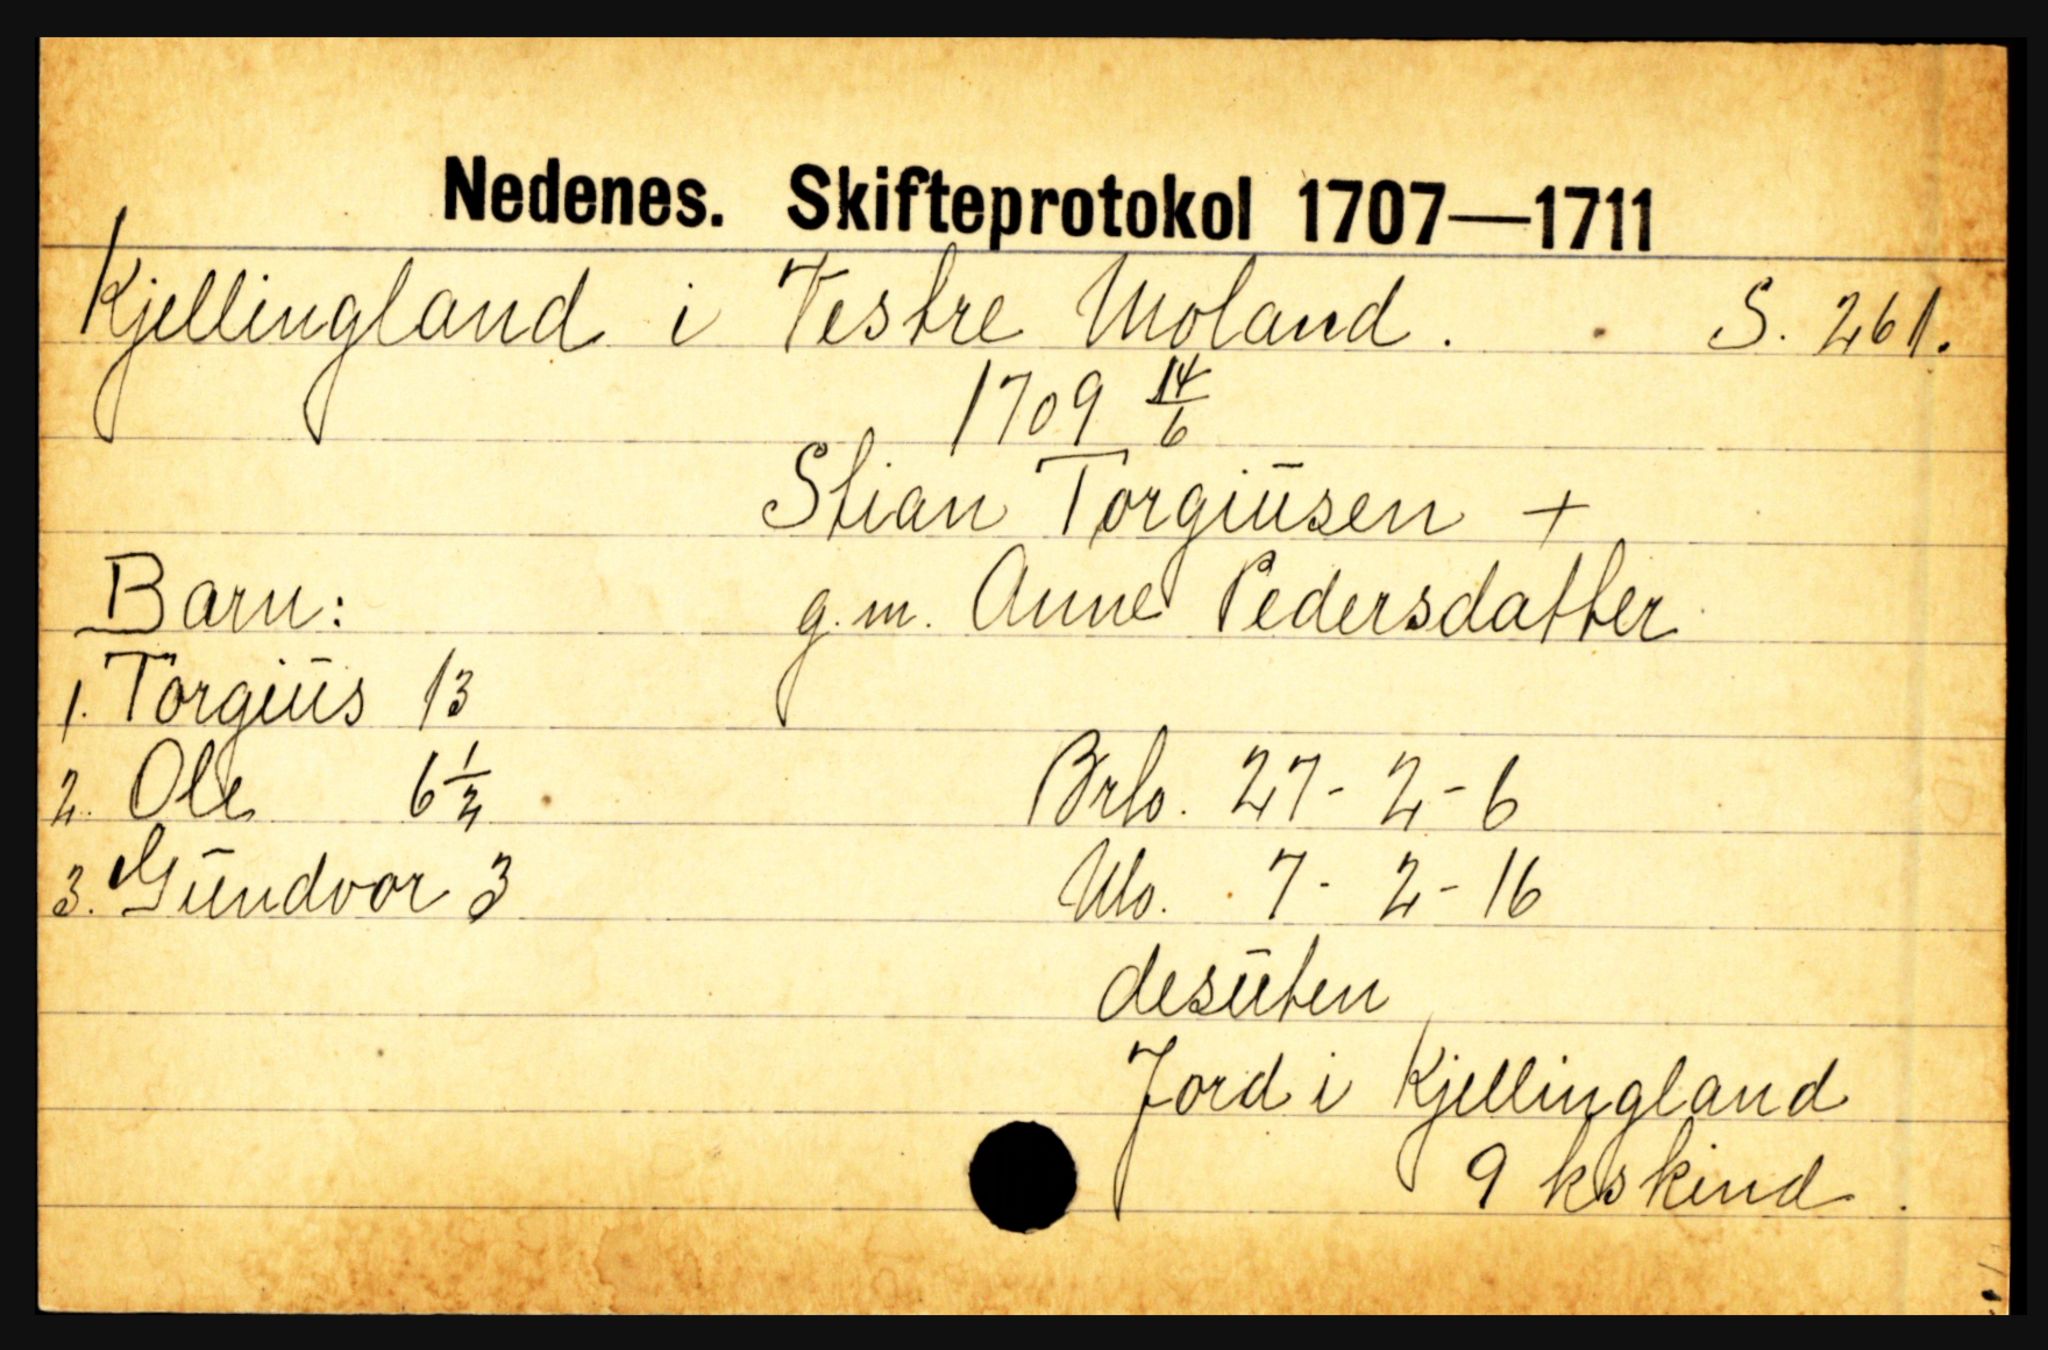 Nedenes. Skifteprotokol 1707—1711
Kjellingland i Vestre Moland. S. 261.
1709 14/6
Stian Torgiusen +
g.m. Anne Pedersdatter
Barn:
1. Torgius 13
2. Ole 6 1/2
3. Gundvor 3
Brlo. 27-2-6
Nlo. 7-2-16
desuten
Jord i Kjellingland
9 kskind.